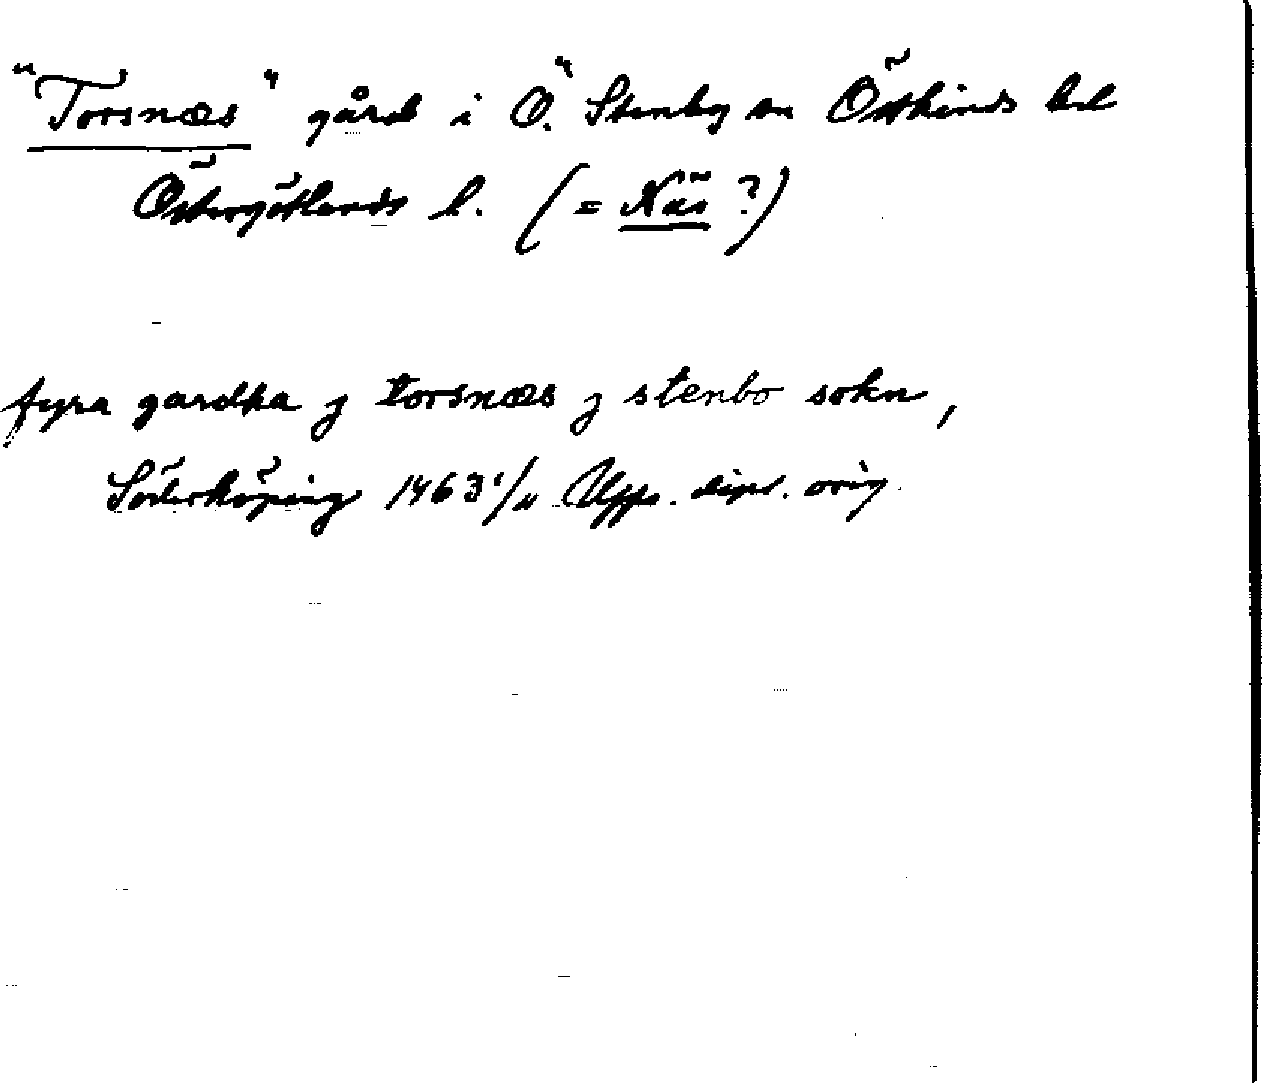 "Torsnæs" gård i Ö. Stenby sn Östkinds hd
Östergötlands l. (= Näs ?)
fyra gardha j torsnæs j stenbo sokn,
Söderköping 1463 1/11 Upps. dipl. orig.